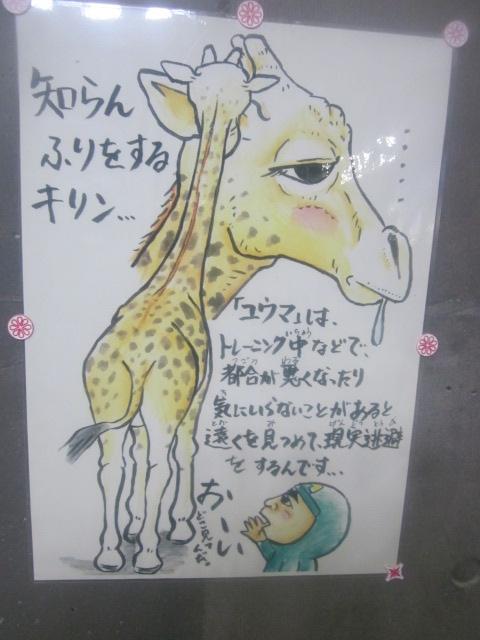 知らん
ふりをする
キリン…
「ユウマ」は、
トレーニング中などで、
都合が悪くなったり
気にいらないことがあると
遠くを見つめて、現実逃避
をするんです…
おーい
どこ見て
んだ。